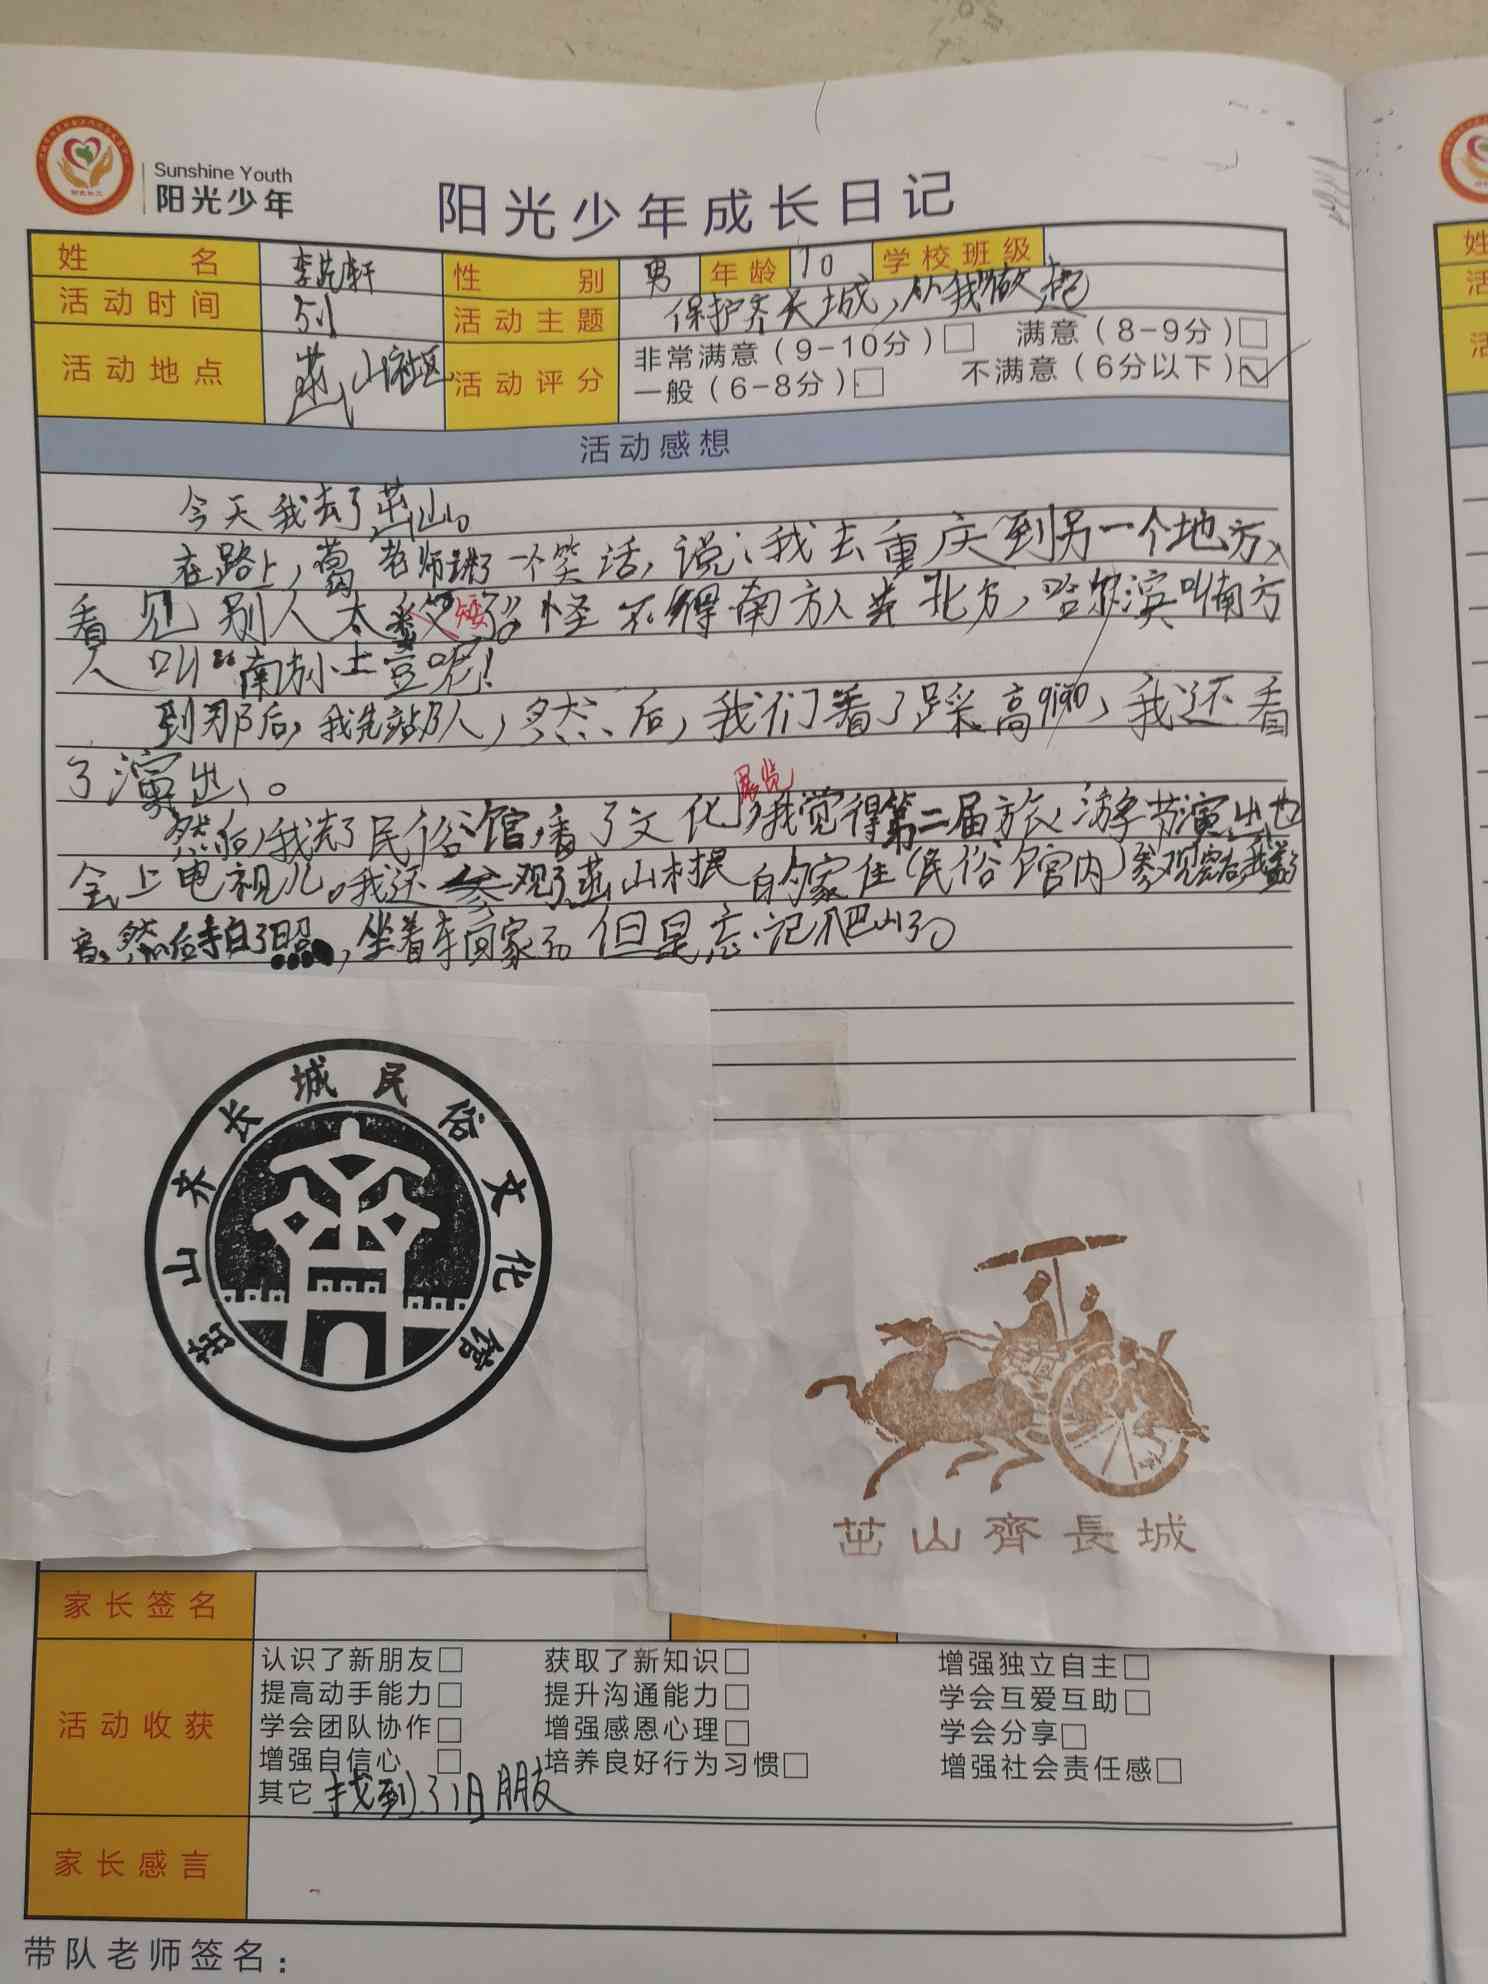 Sunshine Youth
阳光少年
阳光少年成长日记
姓名 李 轩 性别 男 年龄 10 学校班级
活动时间 5.1 活动主题 保护齐长城，从我做起
活动地点 茁山社区 活动评分 非常满意（9-10分）□ 满意（8-9分）□
一般（6-8分）□ 不满意（6分以下）☑
活动感想
今天我去了茁山。
在路上，葛老师讲了一个笑话，说：我去重庆到另一个地方、
看见别人太矮了。怪不得南方人去北方，哈尔滨叫南方
人叫“南方小土豆呢！
到那后，我先站了人，然后，我们看了踩高 ，我还看
了演出、。
展览
然后，我去了民俗馆，看了文化，我觉得第二届旅游节演出也
会上电视儿。我还参观了茁山村民自的家住（民俗馆内）参观完后我
然后拍了照，坐着车回家了但是忘记爬山了。
茁山齐长城民俗文化馆
茁山齊長城
家长签名
活动收获
认识了新朋友□ 获取了新知识□ 增强独立自主□
提高动手能力□ 提升沟通能力□ 学会互爱互助□
学会团队协作□ 增强感恩心理□ 学会分享□
增强自信心 □ 培养良好行为习惯□ 增强社会责任感□
其它 找到了旧朋友
家长感言
带队老师签名：